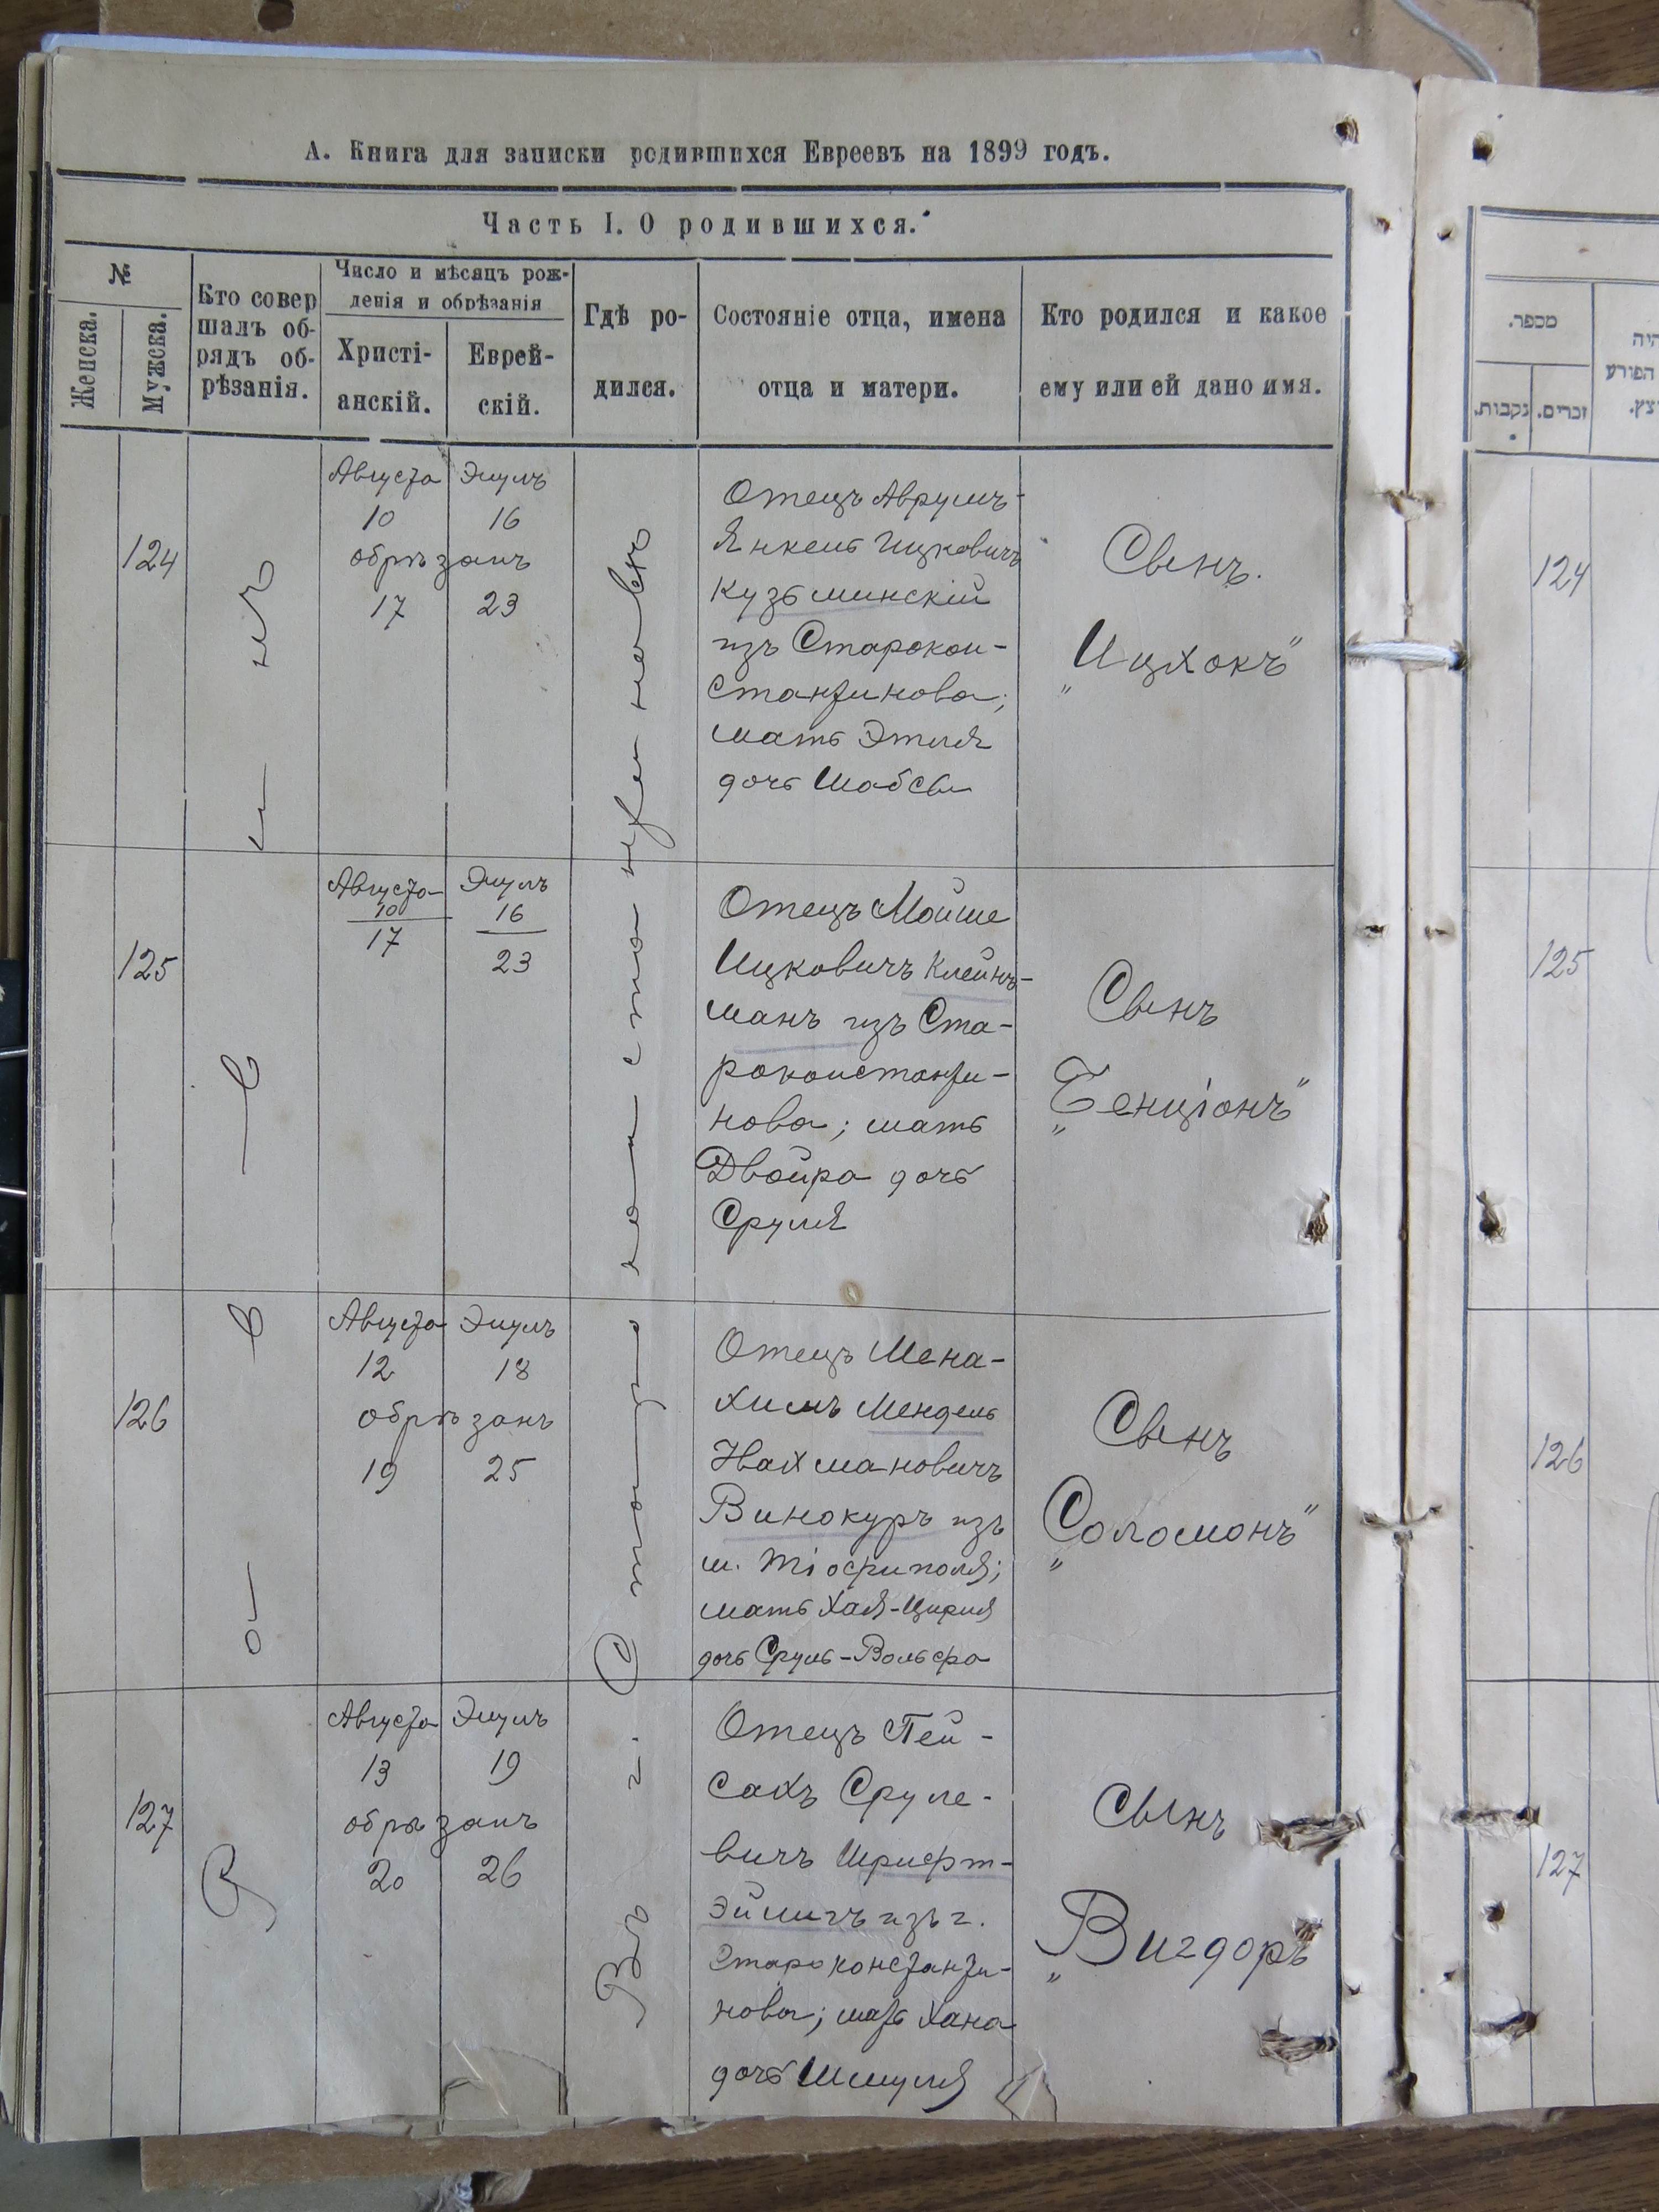 А. Книга для записки родившихся Евреевъ на 1899 годъ.
Часть I. О родившихся.
№
Женска.
Мужска.
Кто совер
шалъ об-
рядъ об-
рѣзанія.
Число и мѣсяцъ рож-
денія и обрѣзанія
Христі-
анскій.
Еврей-
скій.
Гдѣ ро-
дился.
Состояніе отца, имена
отца и матери.
Кто родился и какое
ему или ей дано имя.
Въ г. Староконстантиновѣ
124
Августа Элулъ
10 16
обрѣзанъ
17 23
Отецъ Аврумъ-
Янкель Ицковичъ
Кузьминскій
изъ Старокон-
стантинова;
мать Этля
дочь Шабсы
Сынъ.
„Ицхокъ"
125
Августа Элулъ
10 16
17 23
Отецъ Мойше
Ицковичъ Клейнъ-
манъ изъ Ста-
роконстанти-
нова; мать
Двойра дочь
Сруля
Сынъ
„Бенціонъ"
126
Августа Элулъ
12 18
обрѣзанъ
19 25
Отецъ Мена-
химъ Мендель
Нахмановичъ
Винокуръ изъ
м. Тіофиполя;
мать Хая-Цирля
дочь Сруль-Вольфа
Сынъ
„Соломонъ"
127
Августа Элулъ
13 19
обрѣзанъ
20 26
Отецъ Пей-
сахъ Сруле-
вичъ Шрифт-
эйлигъ изъ г.
Староконстанти-
нова; мать Хана
дочь Шмуля
Сынъ
„Вигдоръ"
מספר.
נקבות.
זכרים.
היה
הפורע
124
125
126
127